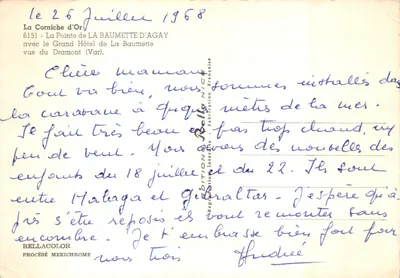 le 26 Juillet 1968
La Corniche d'Or
6151 - La Pointe de LA BAUMETTE D'AGAY
avec le Grand Hôtel de La Baumette
vus du Dramont (Var).
Chère maman
Tout va bien, nous sommes installés dans
la caravane à qques mètres de la mer.
Il fait très beau et pas trop chaud, un
peu de vent. Nous avons des nouvelles des
enfants du 18 juillet et du 22. Ils sont
entre Malaga et Gibraltar. J'espère qu'a
près s'être reposés ils vont remonter sans
encombre. Je t'embrasse bien fort pour
nous trois Andrée
RELLACOLOR
PROCÉDÉ MEXICHROME
EDITIONS Rella NICE